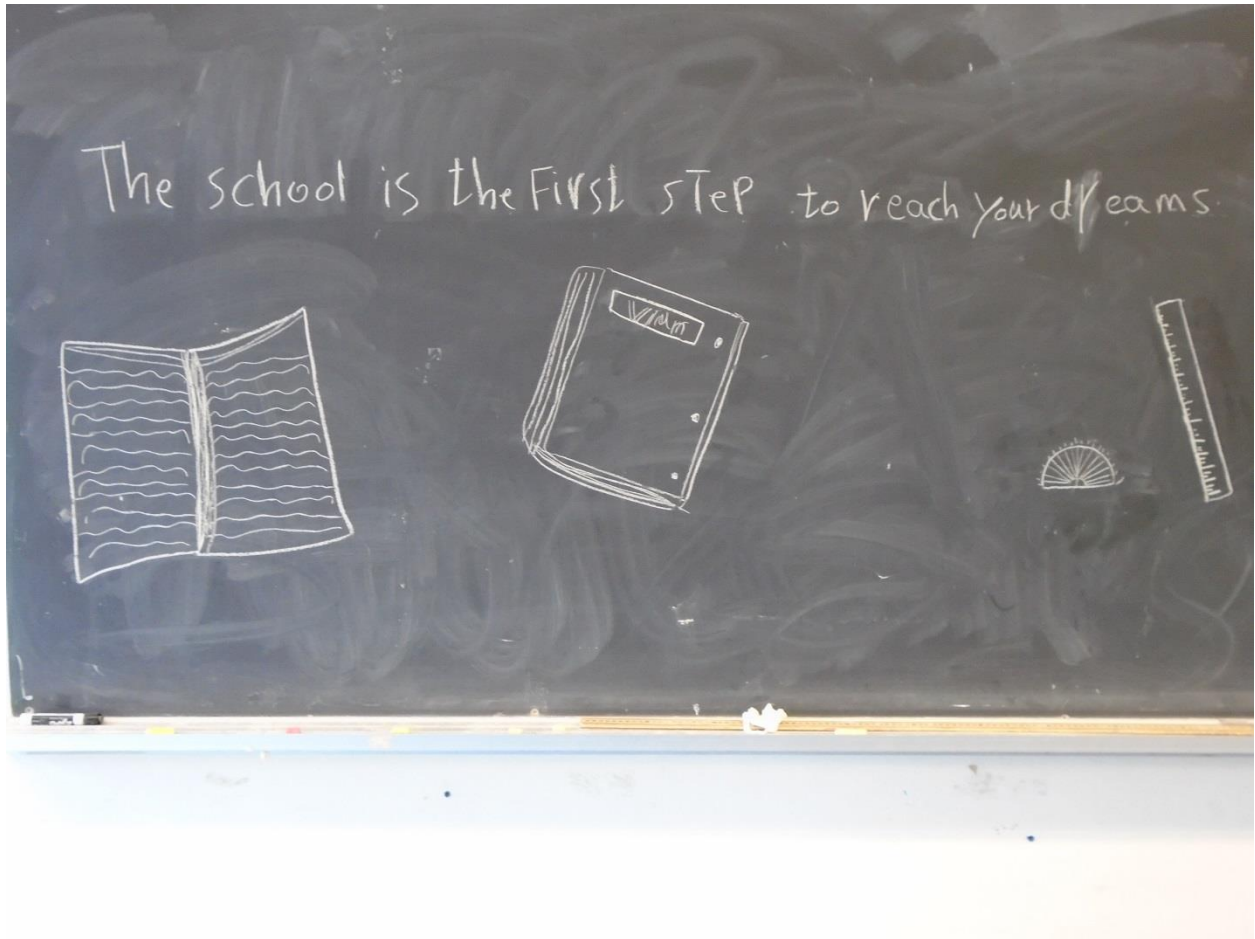 The school is the First sTeP to reach your dreams.